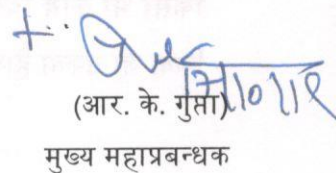 (आर. के. गुप्ता)
मुख्य महाप्रबन्धक